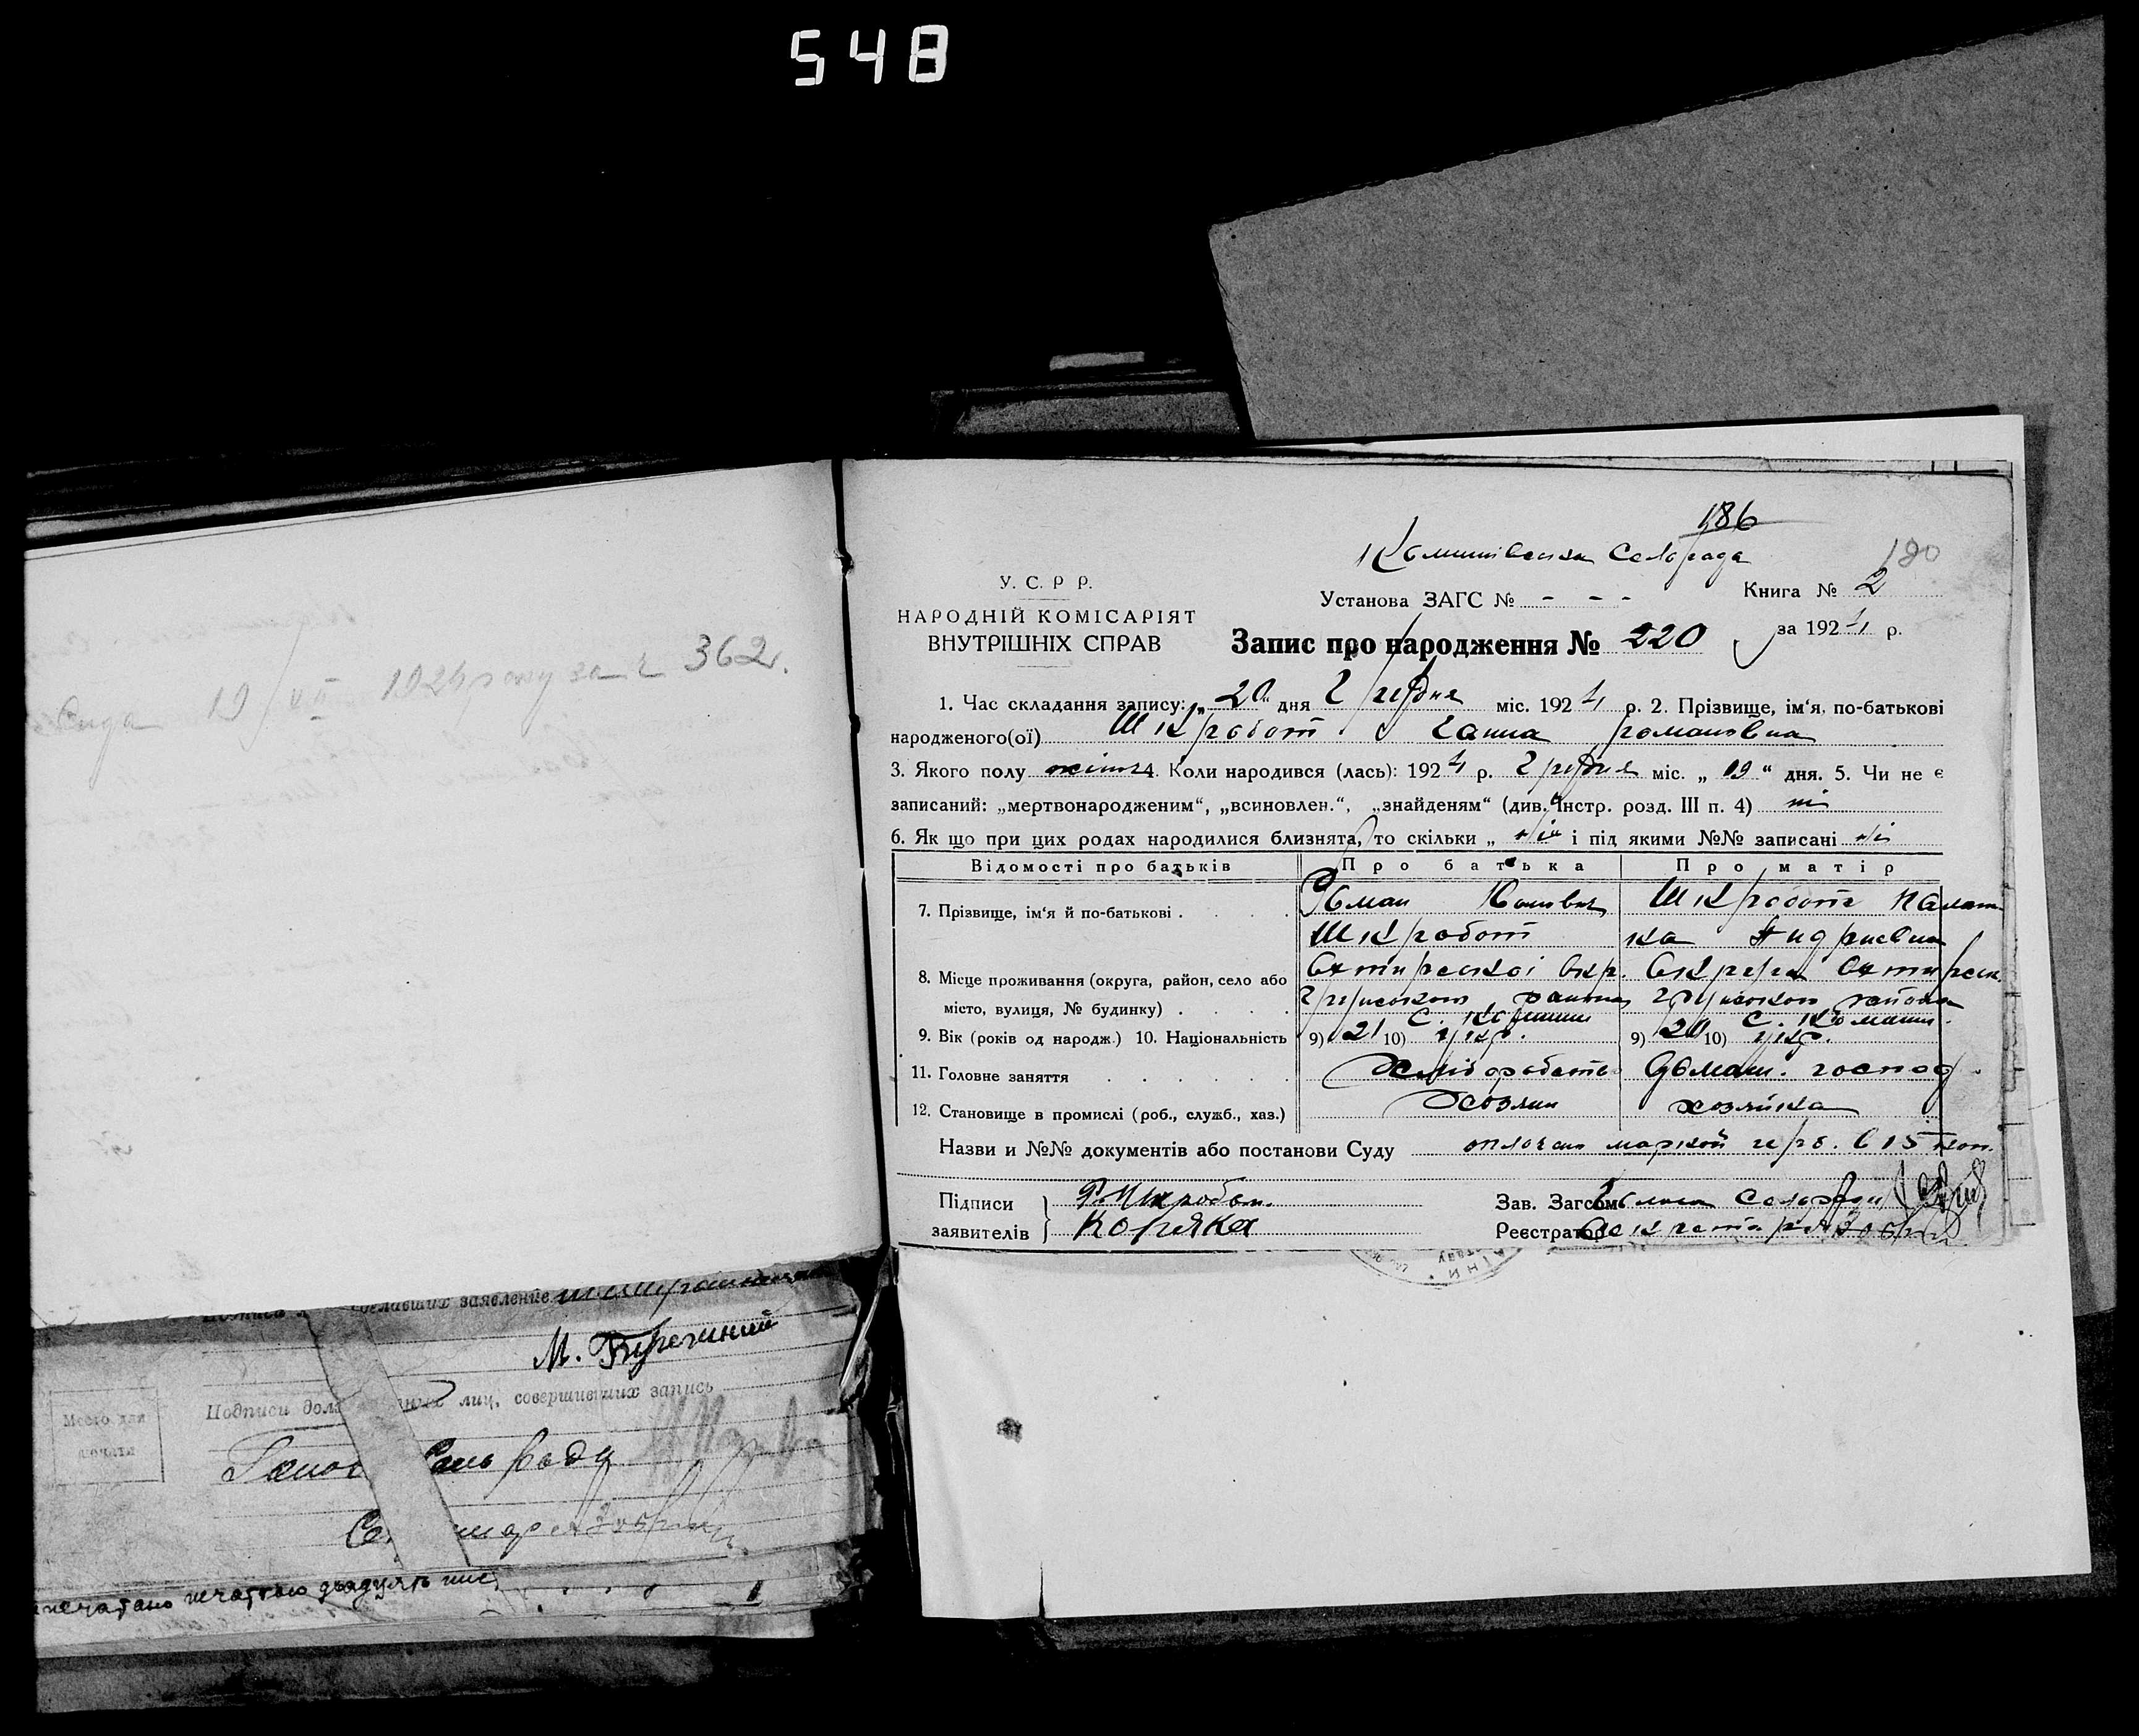 548
1924 року за № 362.
19/VII
сделавших заявление
М.
Подписи лиц, совершивших запись
Место для
печати
печатью двадцять
186
Комишівська Сельрада
180
У. С. Р Р.
НАРОДНІЙ КОМІСАРІЯТ
ВНУТРІШНІХ СПРАВ
Установа ЗАГС № - - -
Книга № 2
за 1924 р.
Запис про народження № 220
1. Час складання запису: „20“ дня Грудня міс. 1924 р. 2. Прізвище, ім‘я, по-батькові
народженого(ої) Шкробот Ганна Романовна
3. Якого полу жіноч 4. Коли народився (лась): 1924 р. Грудня міс. „19“ дня. 5. Чи не є
записаний: „мертвонародженим“, „всиновлен.“, „знайденям“ (див. Інстр. розд. III п. 4) ні
6. Як що при цих родах народилися близнята, то скільки „ні“ і під якими №№ записані ні
Відомості про батьків Про батька Про матір
7. Прізвище, ім‘я й по-батькові . . . . Роман Шкробот Палаж
Шкробот ка Андріевна
8. Місце проживання (округа, район, село або Охтирської окр. Округа Охтирськ.
місто, вулиця, № будинку) . . . . Грунського району Грунського района
с. Комиші с. Комиши.
9. Вік (років од народж.) 10. Національність 9) 21 10) укр. 9) 20 10) укр.
11. Головне заняття . . . . . . Хліборобство Домаш. господ.
12. Становище в промислі (роб., служб., хаз.) Хозяин хозяйка
Назви и №№ документів або постанови Суду оплочено маркой герб. в 15 коп.
Підписи Р. Шкробот.
заявителів Коряка
Зав. Загсом Голова Сельради
Реєстратор Секретарь